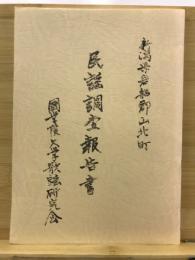 新潟県岩船郡山北町
民謡調査報告書
國學院大學歌謡研究会